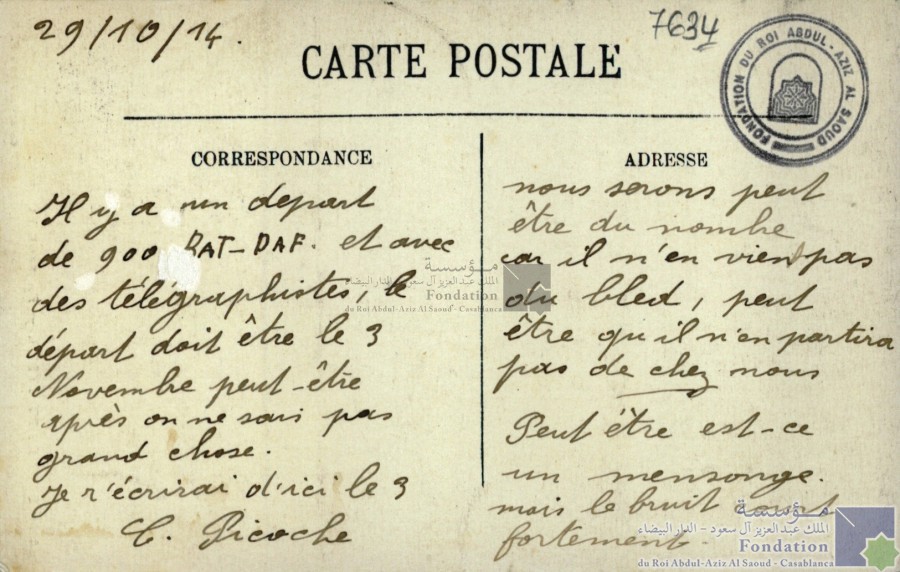 29/10/14.
7634
CARTE POSTALE
FONDATION DU ROI ABDUL-AZIZ AL SAOUD
CORRESPONDANCE
Il y a un depart
de 900 BAT-DAF. et avec
des télégraphistes, le
départ doit être le 3
Novembre peut-être
après on ne sais pas
grand chose.
Je r'écrirai d'ici le 3
C. Picoche
ADRESSE
nous serons peut
être du nombre
car il n'en vient pas
du bled, peut
être qu'il n'en partira
pas de chez nous
Peut être est-ce
un mensonge.
mais le bruit court
fortement.
مؤسسة
الملك عبد العزيز آل سعود - الدار البيضاء
Fondation
du Roi Abdul-Aziz Al Saoud - Casablanca
مؤسسة
الملك عبد العزيز آل سعود - الدار البيضاء
Fondation
du Roi Abdul-Aziz Al Saoud - Casablanca